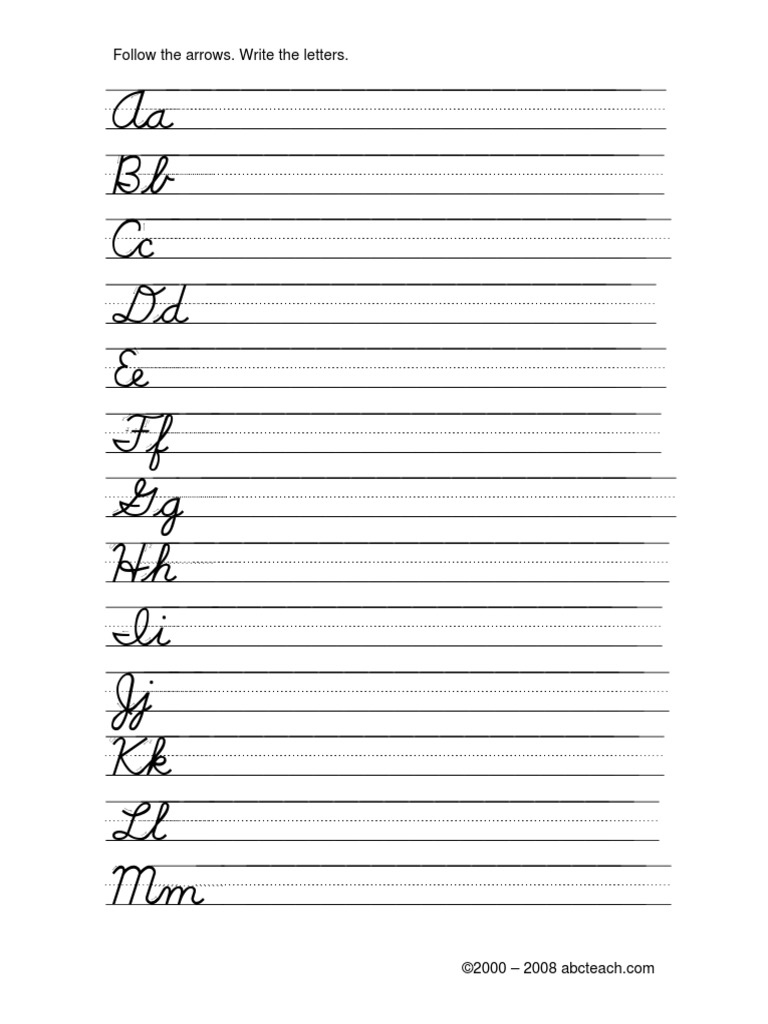 Follow the arrows. Write the letters.
Aa
Bb
Cc
Dd
Ee
Ff
Gg
Hh
Ii
Jj
Kk
Ll
Mm
©2000 – 2008 abcteach.com